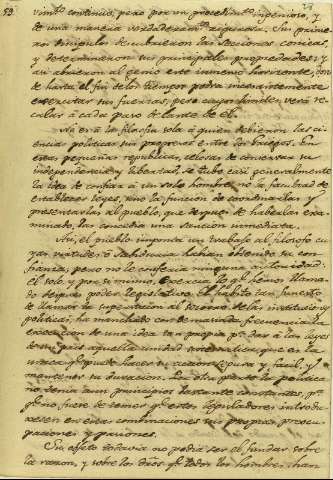 vim.to continuo, pero por un procedim.to ingenioso, y
de una manera verdaderam.te rigurosa. Sus prime-
ros discipulos descubrieron las secciones conicas
y determinaron sus principales propiedades: y
asi abrieron al genio este inmenso horizonte, don-
de hasta el fin de los tiempos podra incesantemente
exercitar sus fuerzas, pero cuyo
a cada paso delante de el.
No era à la filosofia sola à quien debieron las ci-
encias politicas sus progresos entre los Griegos. En
estas pequeñas republicas, celosas de conservar su
independencia y libertad, se tubo casi generalmente
la idea de confiar à un solo hombre, no la facultad de
establecer leyes, sino la función de coordinarlas y
presentarlas al pueblo, que despues de haberlas exa-
minado, las concedia una sancion inmediata.
Asi, el pueblo imponia un trabajo al filosofo cu-
yas virtudes ò sabiduria habian obtenido su con-
fianza, pero no le conferia ninguna autoridad.
El solo, y por si mismo, exercia lo q.e hemos llama-
do despues poder legislativo. El habito tan funesto
de llamar la supersticion al socorro de las instituciones
politicas, ha manchado con demasiada frecuencia la
execucion de una idea tan propia p.a dar à las leyes
de un pais aquella unidad sistematica, que es la
unica q.e puede hacer su accion segura y facil, y
mantener su duracion. Por otra parte la politica
no tenia aun principios bastante constantes, p.a
q.e no fuese de temer q.e estos legisladores introdu-
xesen en estas combinaciones sus propias preocu-
paciones y pasiones.
Su objeto todavia no podia ser el fundar sobre
la razon, y sobre los dros q.e todos los hombres han